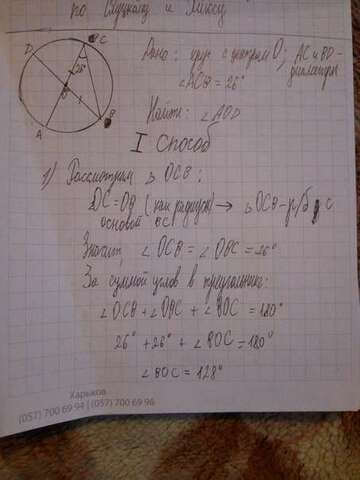 по Слуцкому и Хиксу
D
C
26°
O
A
B
Дано: круг с центром O; AC и BD-
диаметры
∠ACB = 26°
Найти: ∠AOD
I Способ
1) Рассмотрим △ OCB:
OC=OB (как радиусы) → △ OCB - р/б с
основой BC
Значит ∠OCB = ∠OBC = 26°
За суммой углов в треугольнике:
∠OCB + ∠OBC + ∠BOC = 180°
26° + 26° + ∠BOC = 180°
∠BOC = 128°
Харьков
(057) 700 69 94 | (057) 700 69 96